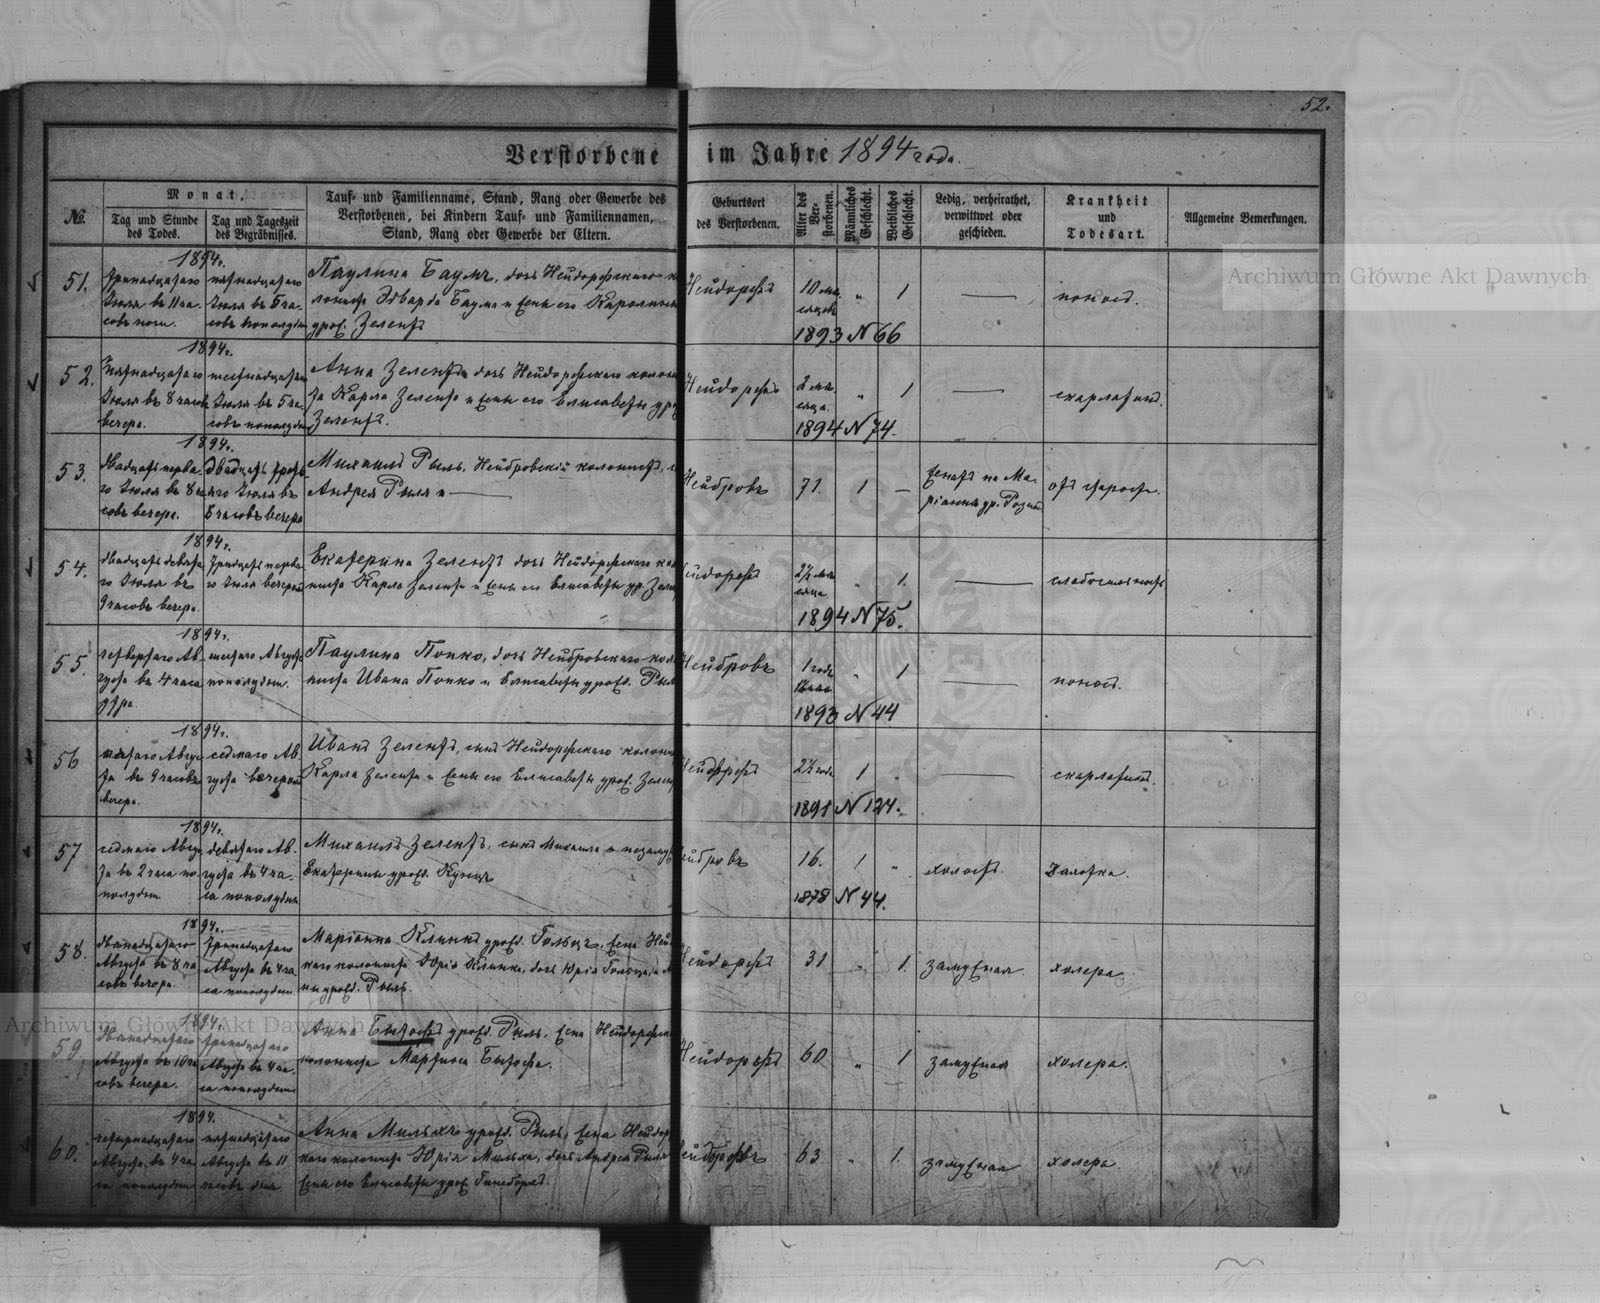 52.
Verstorbene im Jahre 1894 года.
№.
Monat,
Tag und Stunde des Todes.
Tag und Tageszeit des Begräbnisses.
Tauf- und Familienname, Stand, Rang oder Gewerbe des
Verstorbenen, bei Kindern Tauf- und Familiennamen,
Stand, Rang oder Gewerbe der Eltern.
Geburtsort
des Verstorbenen.
Alter des Verstorbenen.
Männliches Geschlecht.
Weibliches Geschlecht.
Ledig, verheirathet,
verwittwet oder
geschieden.
Krankheit
und
Todesart.
Allgemeine Bemerkungen.
1894г.
51.
тринадцатаго
Іюля въ 11 ча-
совъ ночи.
пятнадцатаго
Іюля въ 5 ча-
совъ пополудни
Паулина Баумъ, дочь Нейдорфскаго ко
лониста Эдварда Баума и жены его Каролины
урож. Зелентъ
Нейдорфъ
10 мѣ
сяцевъ
" 1
поносъ.
1893 N 66
1894г.
52.
пятнадцатаго
Іюля въ 8 часовъ
вечера.
шестнадцатаго
Іюля въ 5 ча-
совъ пополудни
Анна Зелентъ дочь Нейдорфскаго колони
та Карла Зелента и жены его Елисаветы ур
Зелентъ.
Нейдорфъ
2 мѣ
сяца.
" 1
скарлатина.
1894 N 74.
1894г.
53.
двадцать перва-
го Іюля въ 8 ча
совъ вечера.
двадцать треть-
яго Іюля въ
8 часовъ вечера
Михаилъ Рыль, Нейбровскій колонистъ,
Андрея Рыля и
Нейбровъ
71.
1 —
женатъ на Ма-
ріаннѣ ур.
отъ старости.
1894г.
54.
двадцать девята
го Іюля въ
9 часовъ вечера.
тридцать перва
го Іюля вечеромъ
Екатерина Зелентъ дочь Нейдорфскаго ко
ниста Карла Зелента и жены его Елисаветы ур. Зелен
ейдорфъ
2½ мѣ
сяца.
" 1.
1894 N 75.
1894г.
55.
четвертаго Ав-
густа въ 4 часа
утра.
шестаго Августа
пополудни.
Паулина Попко, дочь Нейбровскаго коло
ниста Ивана Попко и Елисаветы урож. Рыль
Нейбровъ
1 годъ
" 1
поносъ.
1893 N 44
1894г.
56
пятаго Авгу
та въ 9 часовъ
вечера.
седмаго Ав-
густа вечеромъ
Иванъ Зелентъ, сынъ Нейдорфскаго колони
Карла Зелента и жены его Елисаветы урож. Зелен
Нейдорфъ
2½ года
1 "
скарлатина.
1891 N 124.
1894г.
57
седмаго Авгу
та въ 2 часа по-
полудни
девятаго Ав-
густа въ 4 ча-
са пополудни
Михаилъ Зелентъ, сынъ Михаила и
Екатерины урож. Кунцъ
ейбровъ
16.
1 "
холостъ.
1878 N 44.
1894г.
58.
двѣнадцатаго
Августа въ 8 ча
совъ вечера.
тринадцатаго
Августа въ 4 ча
са пополудни.
Маріанна Клинкъ урожд. Гольцъ, жена Ней
каго колониста Юрія Клинка, дочь Юрія Гольца, и
ны урожд. Рыль.
Нейдорфъ
31
" 1.
замужняя
холера.
1894г.
59.
двѣнадцатаго
Августа въ 10 ча
совъ вечера.
тринадцатаго
Августа въ 4 ча-
са пополудни
Анна урожд. Рыль, жена Нейдорфска
колониста Мартина
Нейдорфъ
60
" 1
замужняя
холера.
1894.
60.
четырнадцатаго
Августа, въ 4 ча
са пополудни
пятнадцатаго
Августа въ 11
часовъ дня.
Анна Мильхъ урожд. Рыль, жена Нейдор
каго колониста Юрія Мильха, дочь Андрея Рыля
жены его Елисаветы урож.
63
" 1.
замужняя
холера
Archiwum Główne Akt Dawnych
Archiwum Główne Akt Dawnych